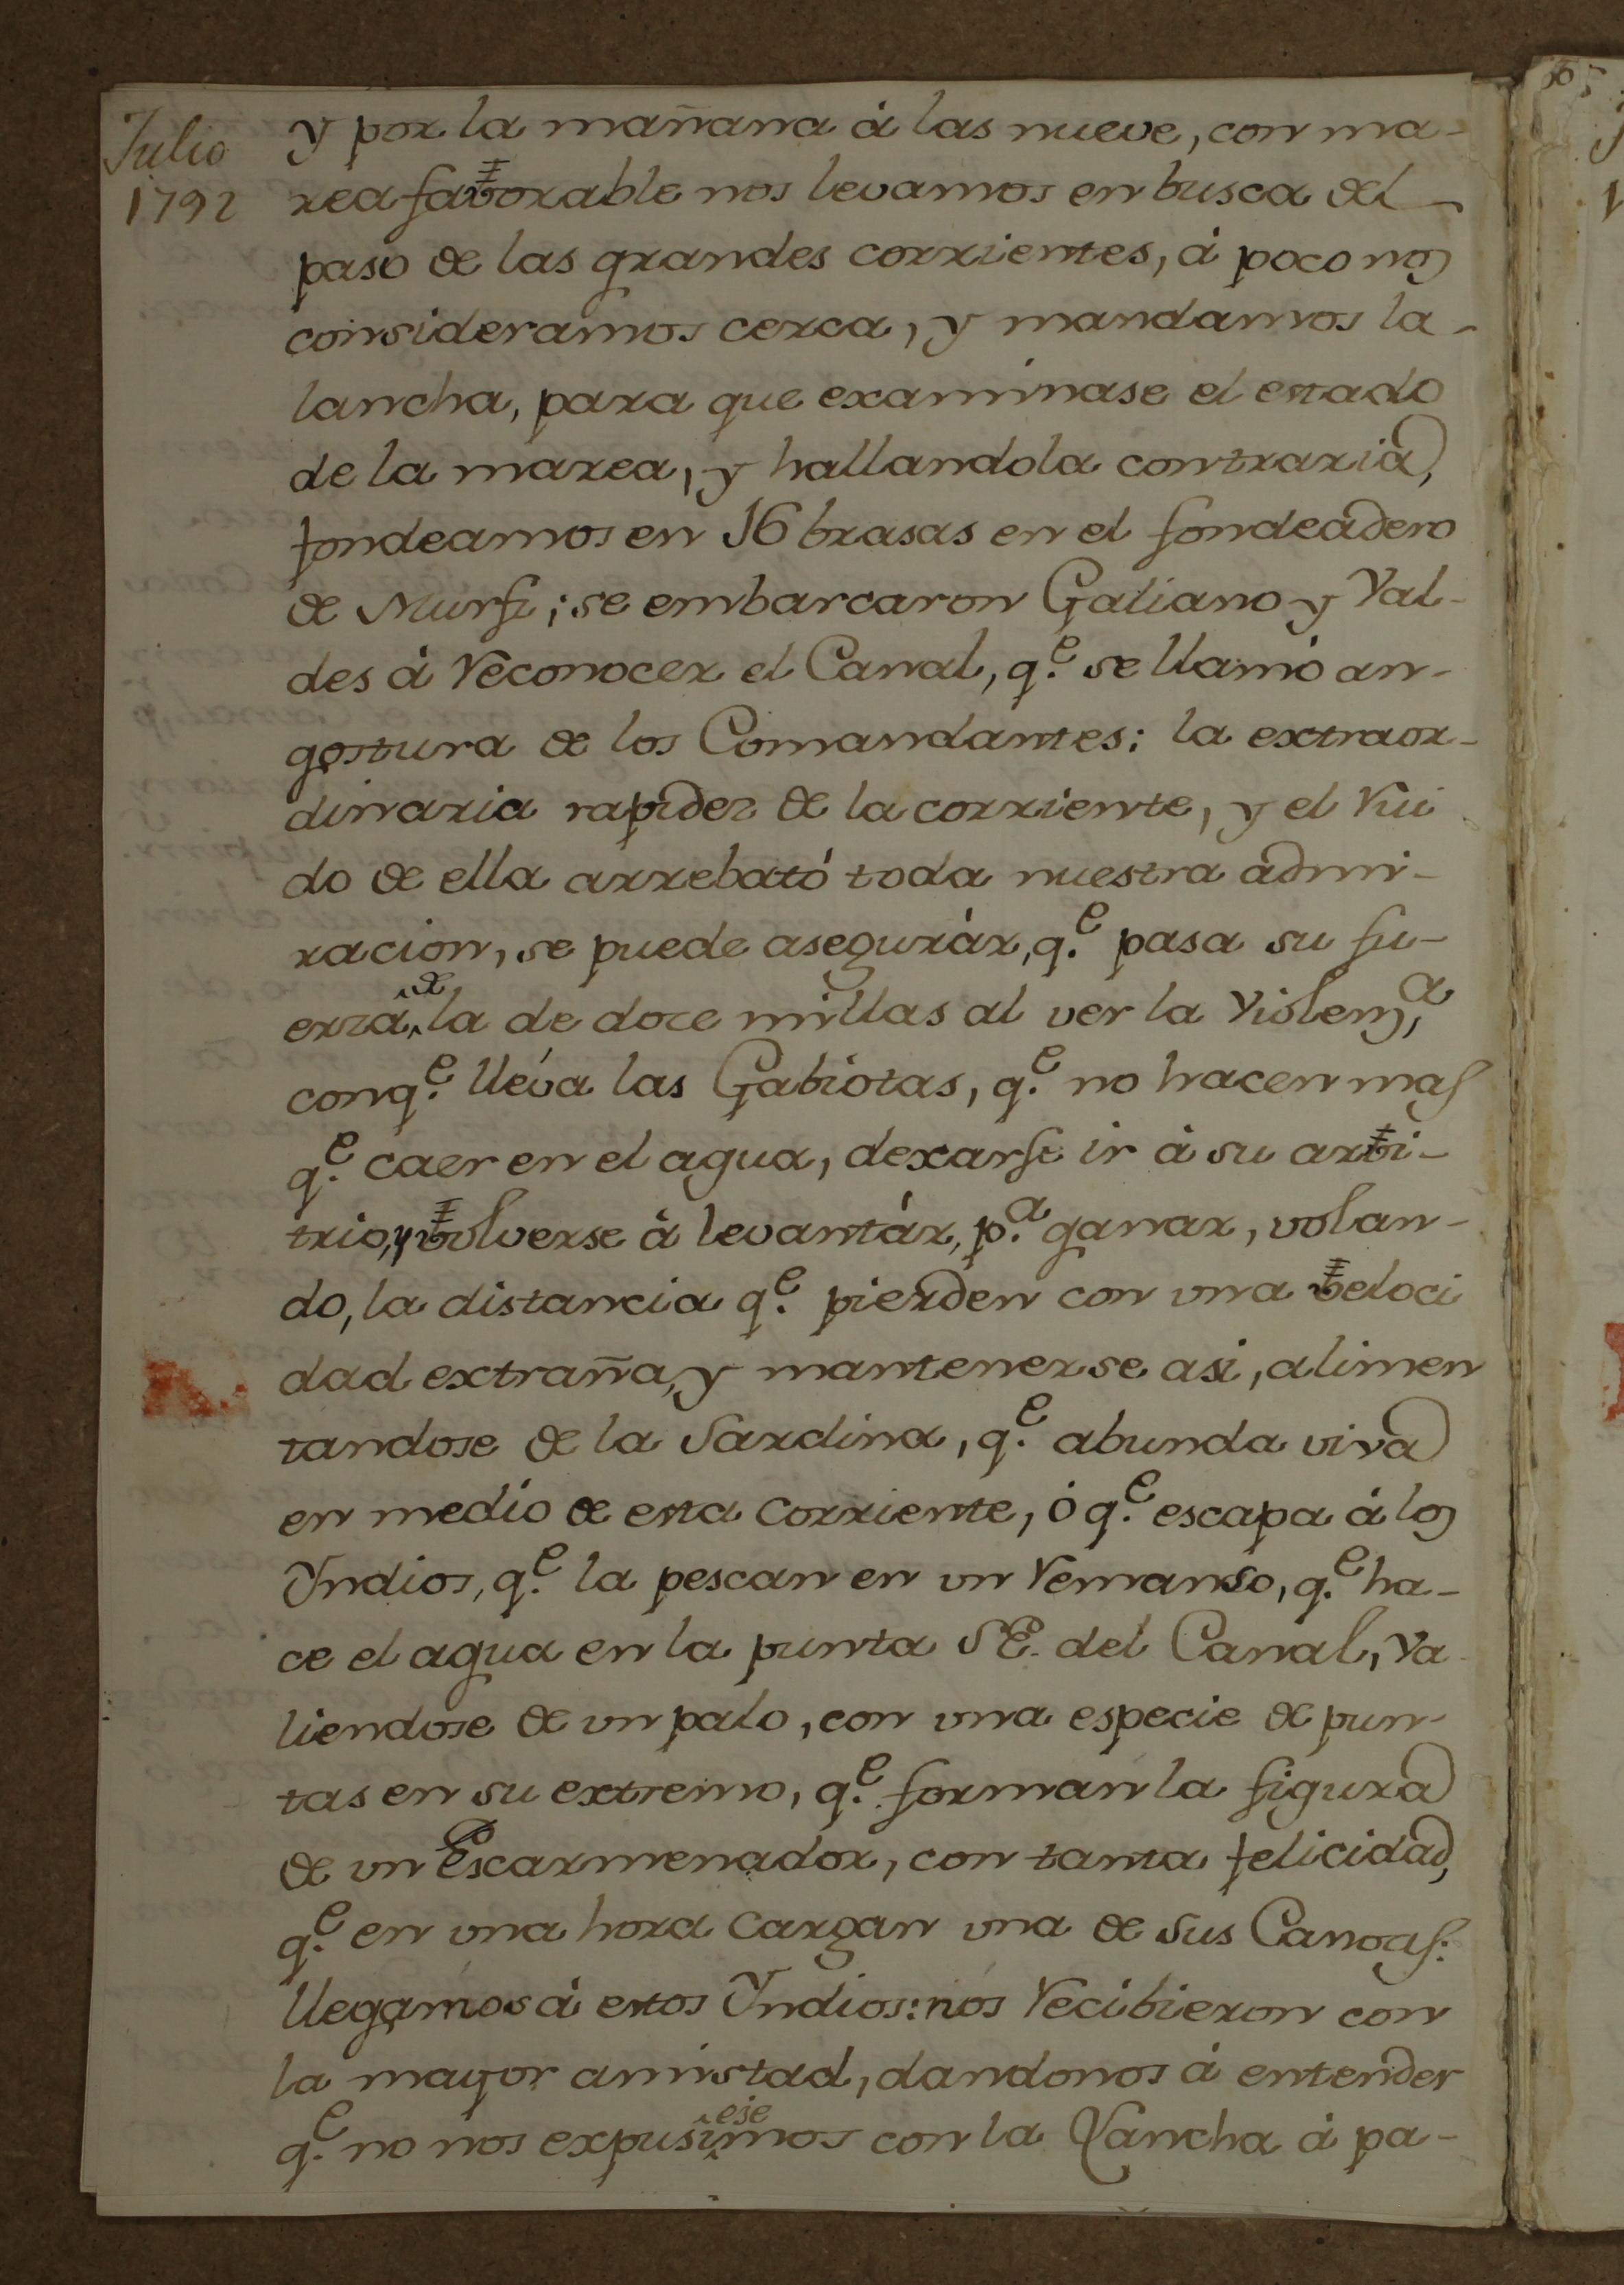 Julio
1792
y por la mañana á las nueve, con ma-
rea favorable nos levamos en busca del
paso de las grandes corrientes, á poco nos
consideramos cerca, y mandamos la-
lancha, para que examinase el estado
de la marea, y hallandola contraria,
fondeamos en 16 brasas en el fondeadero
de Murfi; se embarcaron Galiano y Val-
des á reconocer el Canal, q.e se llamó an-
gostura de los Comandantes: la extraor-
dinaria rapidez de la corriente, y el rui
do de ella arrebató toda nuestra admi-
racion, se puede asegurár, q.e pasa su fu-
erza de la de doce millas al ver la violen.a
con q.e lléva las Gabiotas, q.e no hacen mas
q.e caer en el agua, dexarse ir á su arbi-
trio, y volverse á levantár, p.a ganar, volan-
do, la distancia q.e pierden con una veloci
dad extraña, y mantenerse asi, alimen
tandose de la Sardina, q.e abunda viva
en medio de esta corriente, ó q.e escapa á los
Yndios, q.e la pescan en un remanso, q.e ha-
ce el agua en la punta SE. del Canal, va
liendose de un palo, con una especie de pun-
tas en su extremo, q.e forman la figura
de un Escarmenador, con tanta felicidad,
q.e en una hora cargan una de sus Canoas:
llegamos á estos Yndios: nos recibieron con
la mayor amistad, dandonos á entender
q.e no nos expusiesemos con la Lancha á pa-